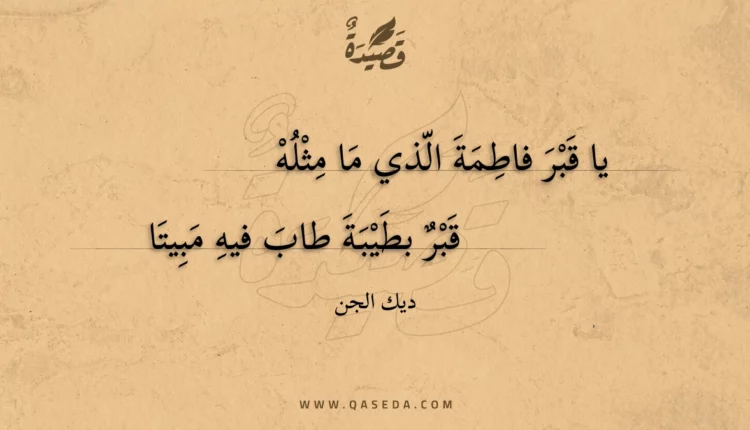 قَصِيْدَةٌ
يا قَبْرَ فاطِمَةَ الّذي مَا مِثْلُهْ
قَبْرٌ بطَيْبَةَ طابَ فيهِ مَبِيتَا
ديك الجن
WWW.QASEDA.COM